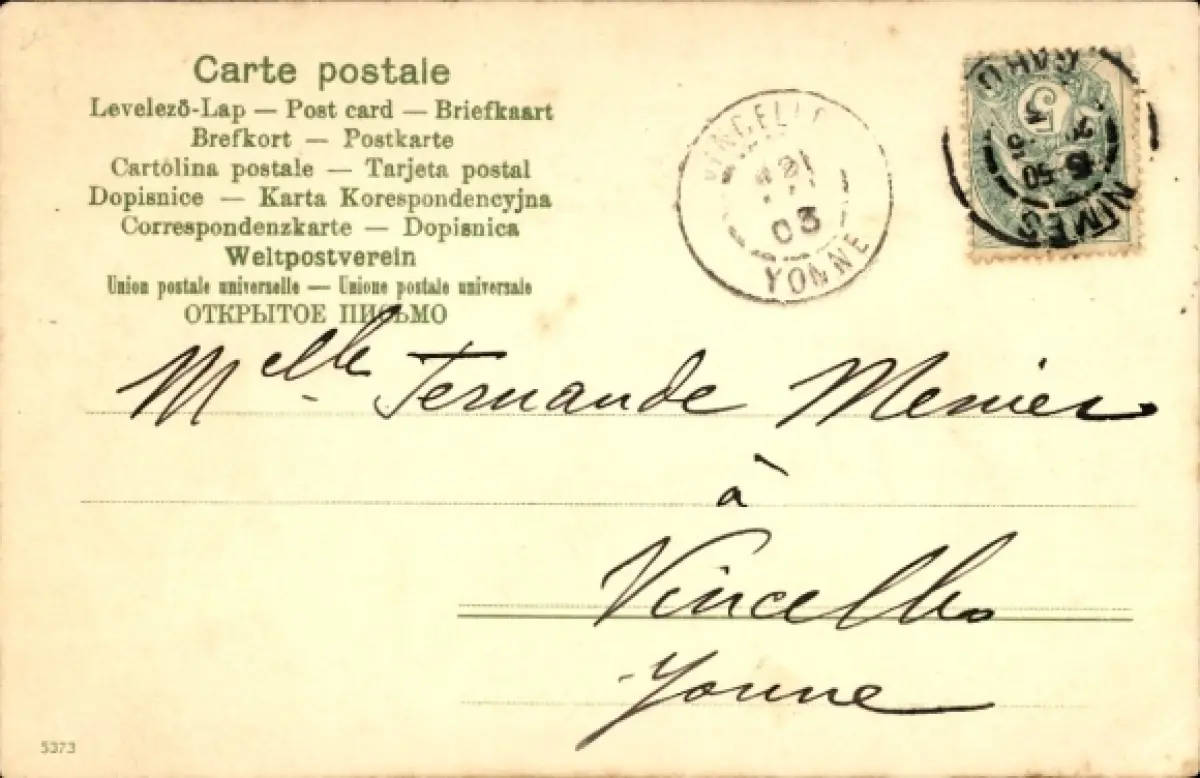 Carte postale
Levelező-Lap — Post card — Briefkaart
Brefkort — Postkarte
Cartolina postale — Tarjeta postal
Dopisnice — Karta Korespondencyjna
Correspondenzkarte — Dopisnica
Weltpostverein
Union postale universelle — Unione postale universale
ОТКРЫТОЕ ПИСЬМО
VINCELLES
03
YONNE
5
GARD
NIMES
Melle Fernande Menier
à
Vincelles
Yonne
5373